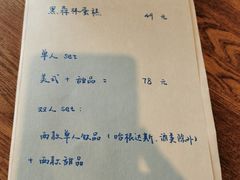 黑森林蛋糕 49 元
单人 set
美式 + 甜品 = 78 元
双人 set:
两款单人饮品 (哈根达斯、
+ 两款甜品